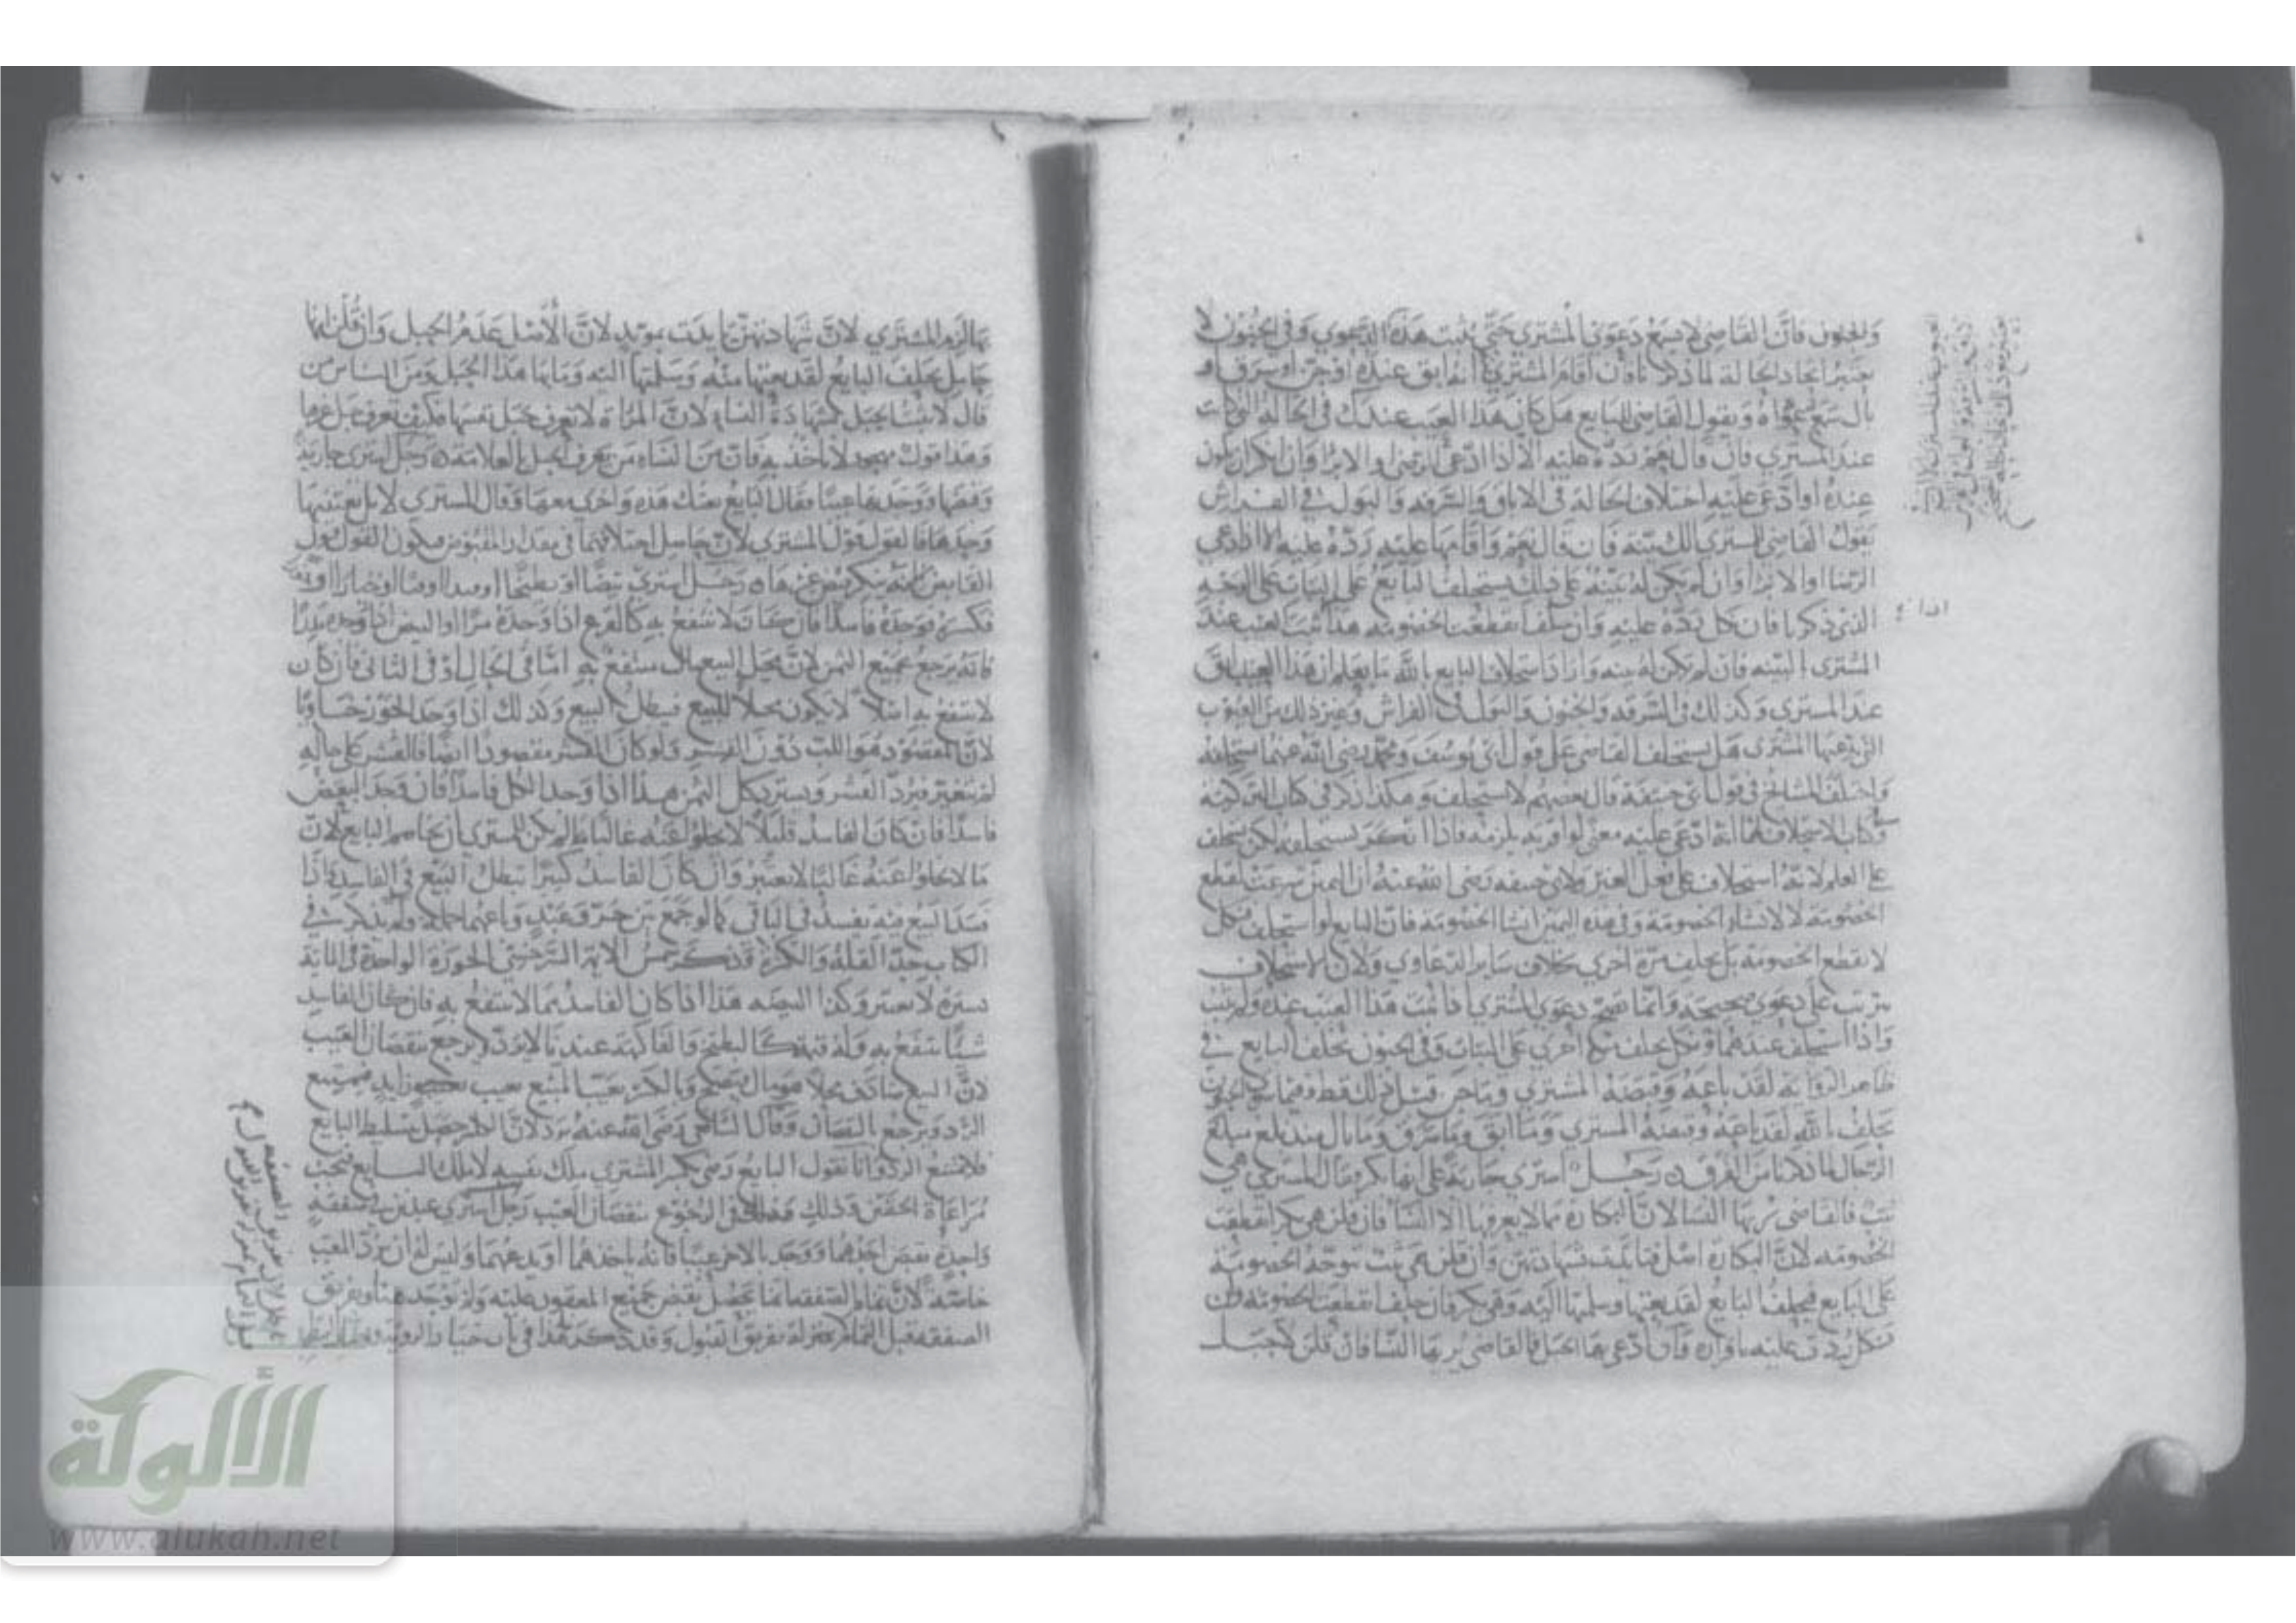 والجنون فان القاضي لا يسمع دعوى المشتري حتى يثبت هذه الدعوى وفي الجنون لا
يعتبر اتحاد الحالة لما ذكرنا فان اقام المشتري انه ابق عنده او جن او سرق او
بال سمع دعواه ويقول القاضي للبايع هل كان هذا العيب عندك في الحالة التي كانت
عند المشتري فان قال نعم رده عليه الا اذا ادعى الرضا والابرا وان انكر ان يكون
عنده او ادعى عليه اختلاف الحالة في الاباق والسرقة والبول في الفراش
يقول القاضي للمشتري الك بينة فان قال نعم واقامها عليه رده عليه الا اذا ادعى
الرضا او الابرا وان لم يكن له بينة على ذلك يستحلف البايع على البتات على الوجه
الذي ذكرنا فان نكل رده عليه وان حلف انقطعت الخصومة هذا اذا ثبت العيب عند
المشتري بالبينة فان لم يكن له بينة واراد استحلاف البايع بالله ما يعلم ان هذا العبد ابق
عند المشتري وكذلك في السرقة والجنون والبول في الفراش وغير ذلك من العيوب
التي يدعيها المشتري هل يستحلف القاضي على قول ابي يوسف ومحمد رضي الله عنهما يستحلفه
واختلف المشايخ في قول ابي حنيفة قال بعضهم لا يستحلف وهكذا ذكر في كتاب التزكية
وكتاب الاستحلاف لهما انه ادعى عليه معنى لو اقر به يلزمه فاذا انكر يستحلف لكن يحلف
على العلم لانه استحلاف على فعل الغير ولابي حنيفة رضي الله عنه ان اليمين شرعت لقطع
الخصومة لا لانشاء الخصومة وفي هذه اليمين انشا الخصومة فان البايع لو استحلف فنكل
لا تقطع الخصومة بل يحلف مرة اخرى بخلاف ساير الدعاوي ولان الاستحلاف
يترتب على دعوى صحيحة وانما تصح دعوى المشتري اذا ثبت هذا العيب عنده ولم يثبت
واذا استحلف عندهما ونكل يحلف مرة اخرى على البتات وفي الجنون يحلف البايع في
ظاهر الرواية لقد باعه وقبضه المشتري وما جن قبل ذلك قط وفيما سوى الجنون
يحلف بالله لقد باعه وقبضه المشتري وما ابق وما سرق وما بال منذ بلغ مبلغ
الرجال لما ذكرنا من الفرق رجل اشترى جارية على انها بكر وقال المشتري هي
ثيب فالقاضي يريها النسا لان البكارة مما لا يعرفها الا النسا فان قلن هي بكر انقطعت
الخصومة لان البكارة اصل فتايدت شهادتهن وان قلن هي ثيب توجه الخصومة
على البايع فيحلف البايع لقد بعتها وسلمتها اليه وهي بكر فان حلف انقطعت الخصومة وان
نكل ردت عليه باقراره وان ادعى بها الحبل فالقاضي يريها النسا فان قلن لا حبل
بها لزم المشتري لان شهادتهن تايدت بمويد لان الاصل عدم الحبل وان قلن انها
حامل يحلف البايع لقد بعتها منه وسلمتها اليه وما بها هذا الحبل ومن الناس من
قال لا يثبت الحبل بشهادة النساء لان المراة لا تعرف حبل نفسها فكيف تعرف حبل غيرها
وهذا قول مهجور لا ناخذ به فان من النساء من يعرف الحبل بالعلامة رجل اشترى جارية
وقبضها ووجد بها عيبا فقال البايع بعتك هذه واخرى معها وقال المشتري لا بل بعتنيها
وحدها فالقول قول المشتري لان حاصل اختلافهما في مقدار المقبوض فيكون القول قول
القابض رجل اشترى بيضا او بطيخا او خيارا او
فكسره فوجده فاسدا فان كان لا ينتفع به كالقرع اذا وجده مرا او البيض اذا وجده مذرا
فانه يرجع بجميع الثمن لان محل البيع مال منتفع به اما في الحال او في الثاني فان كان
لا ينتفع به اصلا لا يكون محلا للبيع فيبطل البيع وكذلك اذا وجد الجوز خاويا
لان المقصود هو اللب دون القشر ولو كان القشر مقصودا ايضا فالقشر على حاله
لم يتغير فيرد القشر ويسترد كل الثمن هذا اذا وجد الكل فاسدا فان وجد البعض
فاسدا فان كان الفاسد قليلا لا يخلو عنه غالبا لم يكن للمشتري ان يخاصم البايع لان
ما لا يخلو عنه غالبا لا يعتبر وان كان الفاسد كثيرا يبطل البيع في الفاسد واذا
فسد البيع فيه يفسد في الباقي كما لو جمع بين حر وعبد وباعهما جملة ولم يذكر في
الكتاب حد القلة والكثرة وقد ذكر شمس الايمة السرخسي الجوزة الواحدة في الماية
لا تعتبر وكذا البيضة هذا اذا كان الفاسد مما لا ينتفع به فان كان الفاسد
شيئا ينتفع به وله قيمة كالبطيخ والفاكهة عندنا لا يرد ويرجع بنقصان العيب
لان البيع
الرد ويرجع بالنقصان وقال الشافعي رضي الله عنه يرد لان الكسر حصل بتسليط البايع
فلا يمتنع الرد وانا نقول البايع رضي بكسر المشتري ملك نفسه لا ملك البايع فيجب
مراعاة الحقين وذلك في الرجوع بنقصان العيب رجل اشترى عبدين في صفقة
واحدة فقبض احدهما ووجد بالاخر عيبا فانه ياخذهما او يدعهما وليس له ان يرد المعيب
خاصة لان تمام الصفقة انما يحصل بقبض جميع المعقود عليه ولم يوجد هنا وتفريق
الصفقة قبل التمام بمنزلة تفريق القبول وقد ذكر هذا في باب خيار الروية
الألوكة
www.alukah.net